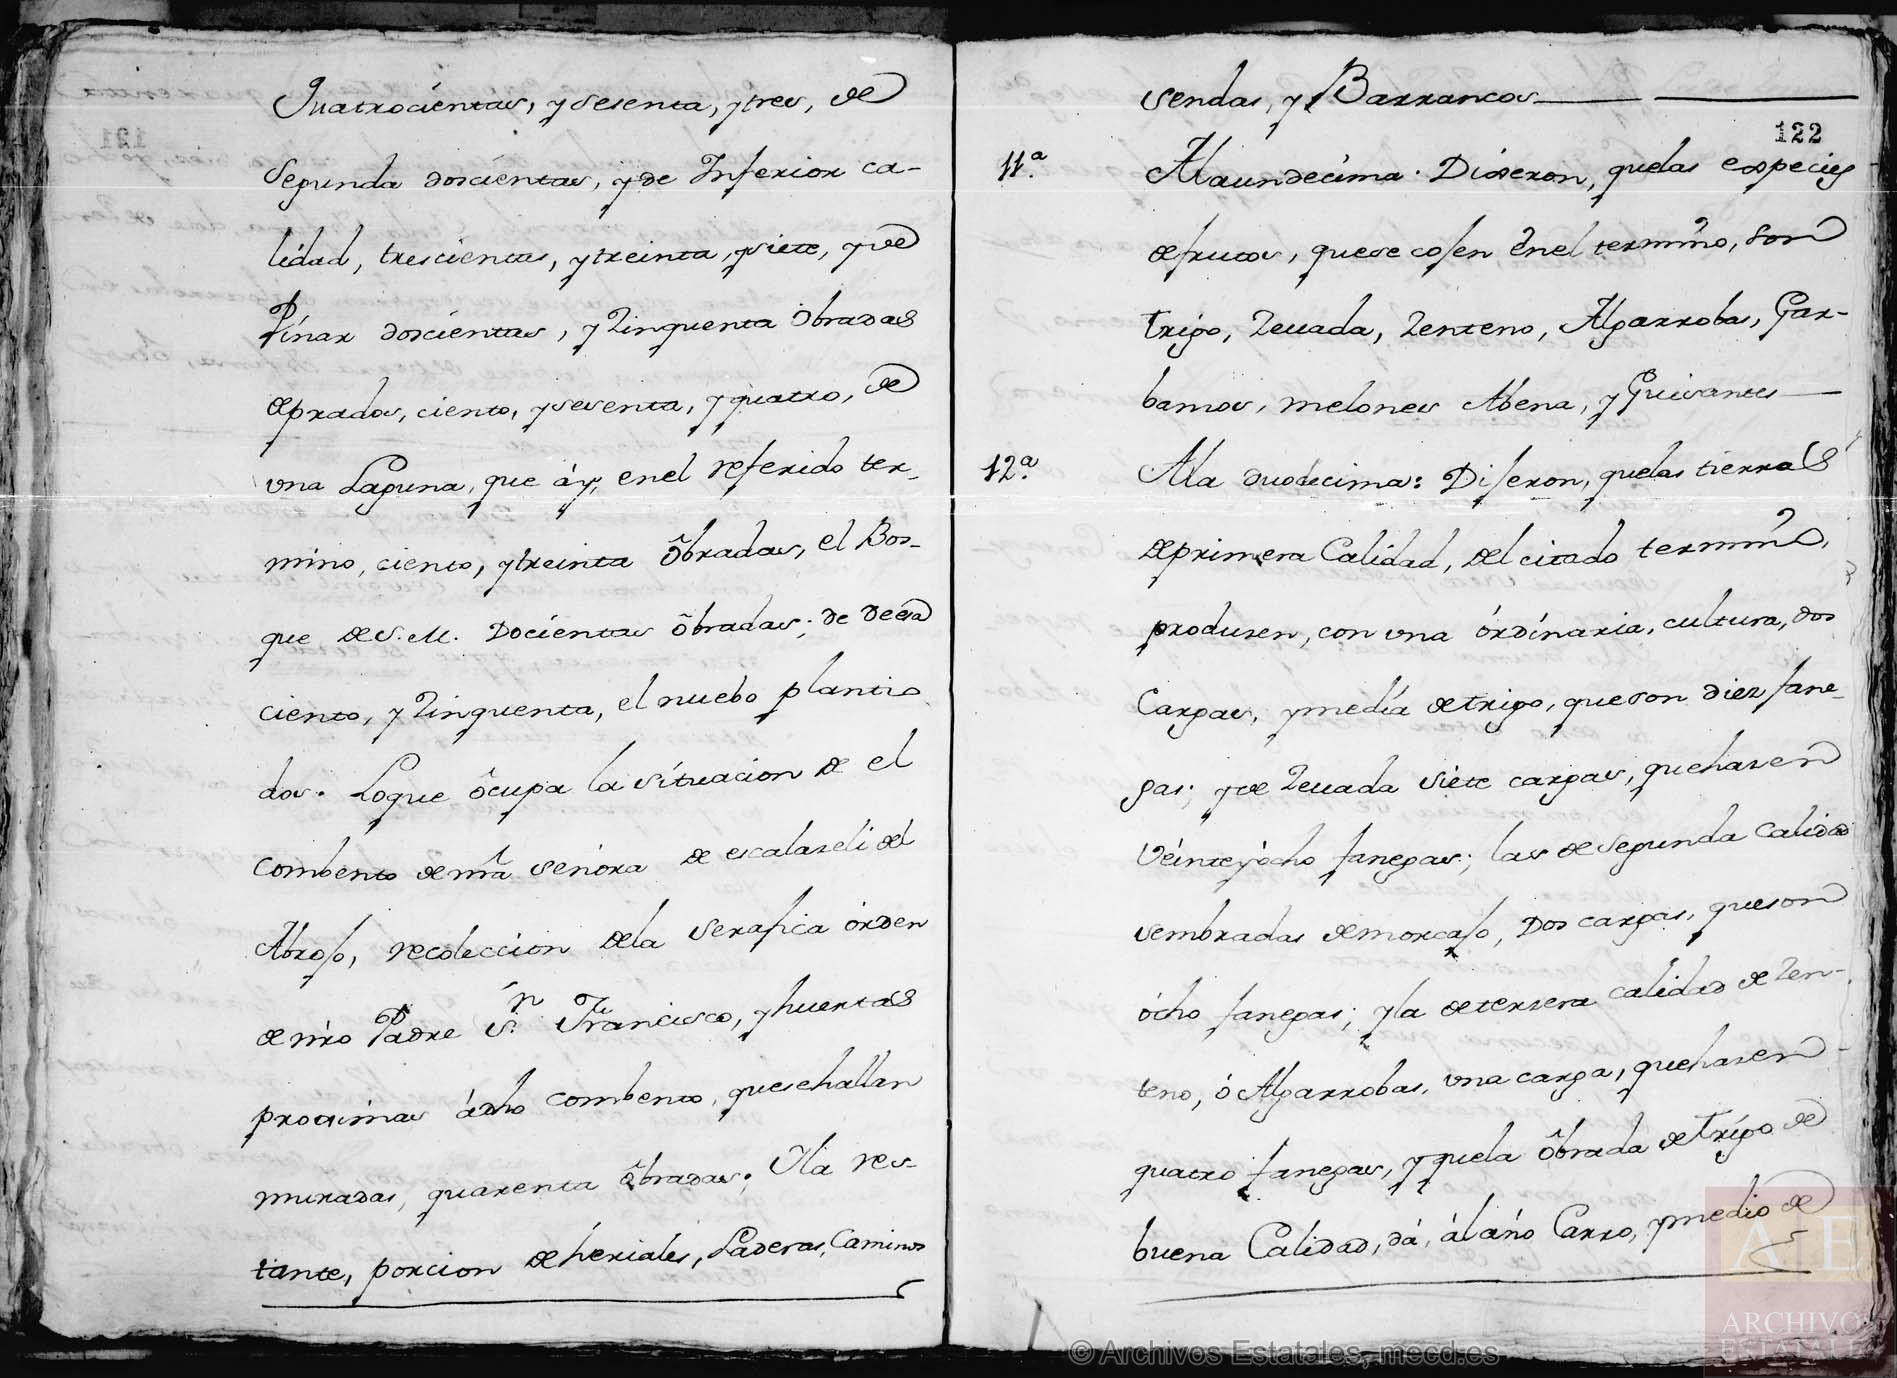 Quatrocientas, y sesenta, y tres, de
Segunda doscientas, y de Inferior ca-
lidad, trescientas, y treinta, y siete, y de
Pinar doscientas, y Zinquenta obradas
de prados, ciento, y sesenta, y quatro, de
una Laguna, que ay, en el referido ter-
mino, ciento, y treinta obradas, el Bos-
que de S. M. Docientas obradas; de Deesa
ciento, y Zinquenta, el nuebo plantio
dos. Loque ocupa la situacion de el
Combento de nra señora de escalazeli del
Abrojo, recoleccion dela Serafica orden
de nro Padre Sn. Francisco, y huertas
proximas a dho combento, quesehallan
muradas, quarenta obradas; Ila res-
tante, porcion de heriales, Laderas, Caminos
sendas, y Barrancos
122
11.ª Alaundecima. Dixeron, quelas especies
defrutos, quese cojen enel termino, son
trigo, Zeuada, Zenteno, Algarrobas, Gar-
banzos, melones Abena, y Guisantes
12.ª Ala duodecima: Dijeron, quelas tierras
deprimera Calidad, del citado termino,
produzen, con una ordinaria, cultura, dos
Cargas, y media detrigo, queson diez fane-
gas; y de Zeuada siete cargas, quehazen
veinteyocho fanegas; las de segunda calidad
sembradas demorcajo, Dos cargas, queson
ocho fanegas; y la deterzera calidad de Zen-
teno, ó Algarrobas, una carga, quehazen
quatro fanegas, y quela obrada de trigo de
buena Calidad, dá, álaño Carro, y medio de
© Archivos Estatales, mecd.es
AE
ARCHIVOS
ESTATALES